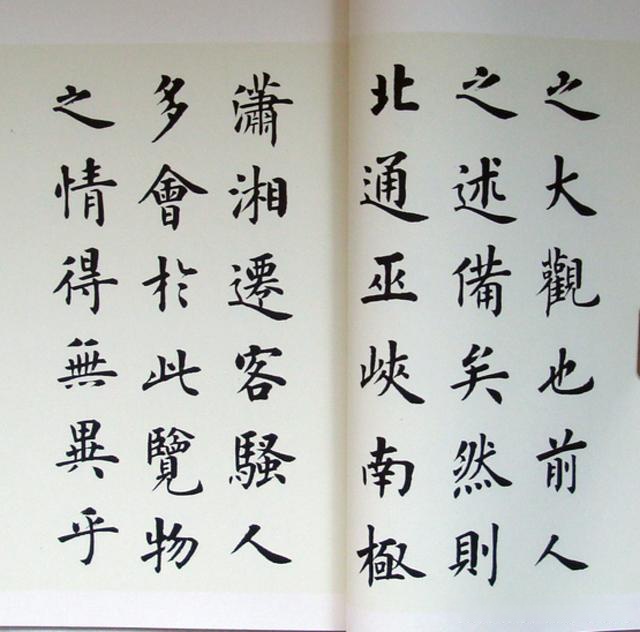 之大觀也前人
之述備矣然則
北通巫峽南極
瀟湘遷客騷人
多會於此覽物
之情得無異乎